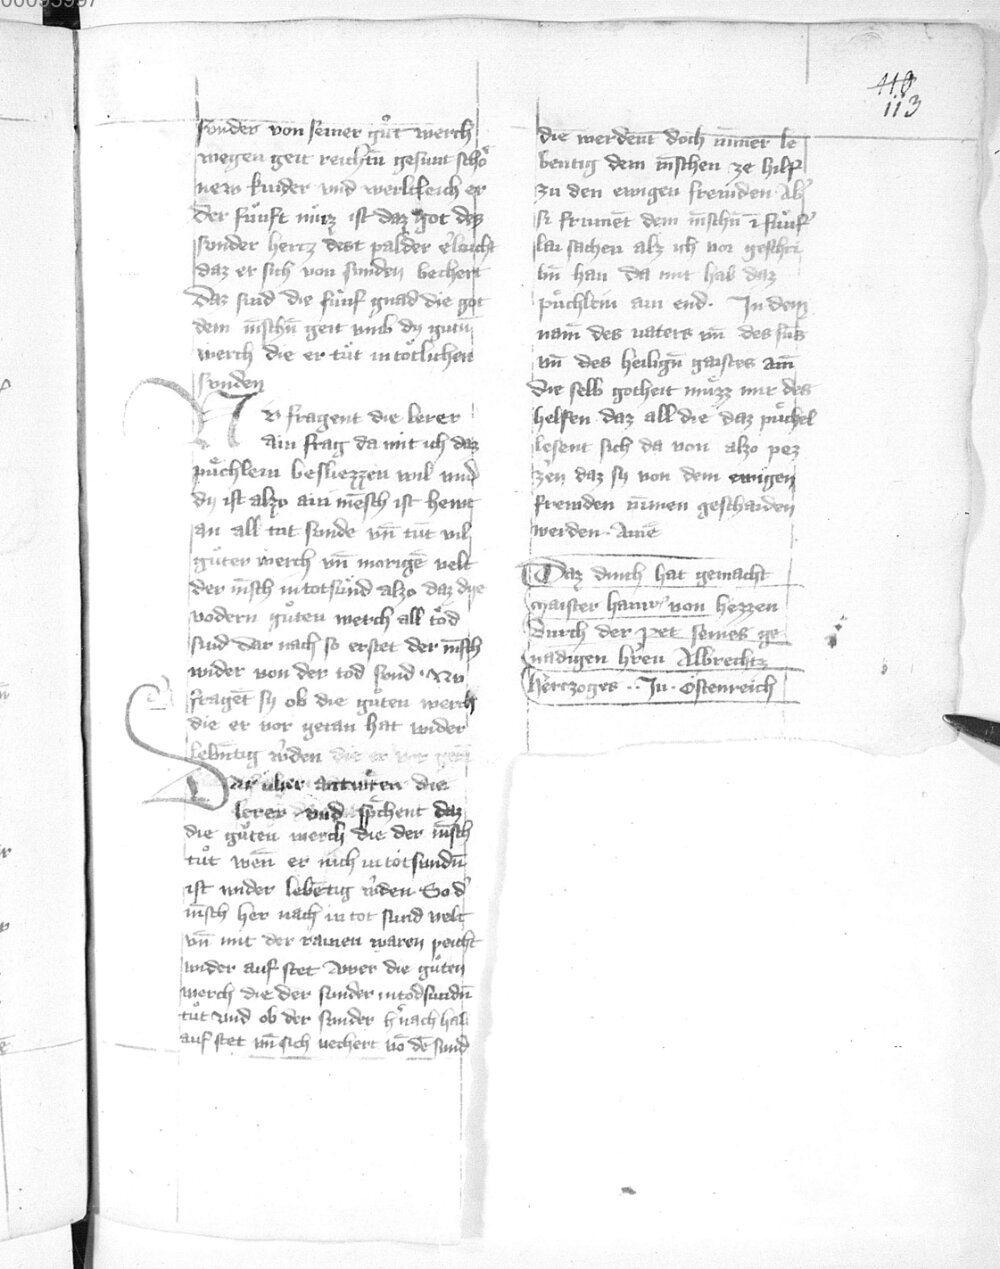 110
113
sunder von seiner guͦt werch
wegen geit reichtū gesunt schoͤ
new kinder vnd werltleich er
Der fuͤnft nucz ist daz got des
sunder hercz dest palder erlaucht
daz er sich von sunden bechert
Daz sind die fuͤnf gnad die got
dem mēschn̄ geit vmb dy gutn̄
werch die er tuͤt in toͤtlichen
sunden
Nv fragent die lerer
ain frag da mit ich daz
puͤchlein besliezzen wil vnd
dy ist alzo ain mēsch ist hewt
an all tot sunde vn̄ tuͦt vil
guͦter werch vn̄ morigē velt
der mēsch in totsund alzo daz dye
vodern guͦten werch all toͤd
sind dar nach so erstet der mēsch
wider von der tod sund. Nv
fragēt sy ob die guͦten werch
die er vor getan hat wider
lebn̄tig wͤden die er vor getā
Dar uber antwͦrten die
lerer vnd sp̄chent daz
die guͦten werch die der mēsch
tuͦt wen̄ er nich in tot sundn̄
ist wider lebētig wͤden So dͤ
mēsch her nach in tot sund velt
vn̄ mit der rainen waren peicht
wider auf stet Aber die guͦten
werch die der sunder in todsundn̄
tuͦt vnd ob der sunder hͤnach hal
auf stet vn̄ sich bechert vō dē sund
die werdent doch nīmer le
bentig dem mēschen ze hilf
zu den ewigen frewden Abͤ
si frumēt dem mēschn̄ ī fuͤnf
lai sachen alz ich vor geschri
bn̄ han da mit hab daz
puͤchlein ain end. In dem
nam̄ des vaters vn̄ des suns
vn̄ des heilign̄ gaistes am̄
die selb gotheit muͤzz mir des
helfen daz all die daz puͤchel
lesent sich da von alzo pez
zern daz sy von dem ewigen
frewden nīmen geschaiden
werden. Amē
Daz buch hat gemacht
maister hainr̄ von hezzen
durch der pet seines ge
nadigen hr̄en Albrechtz
herczoges .. In . Ostenreich